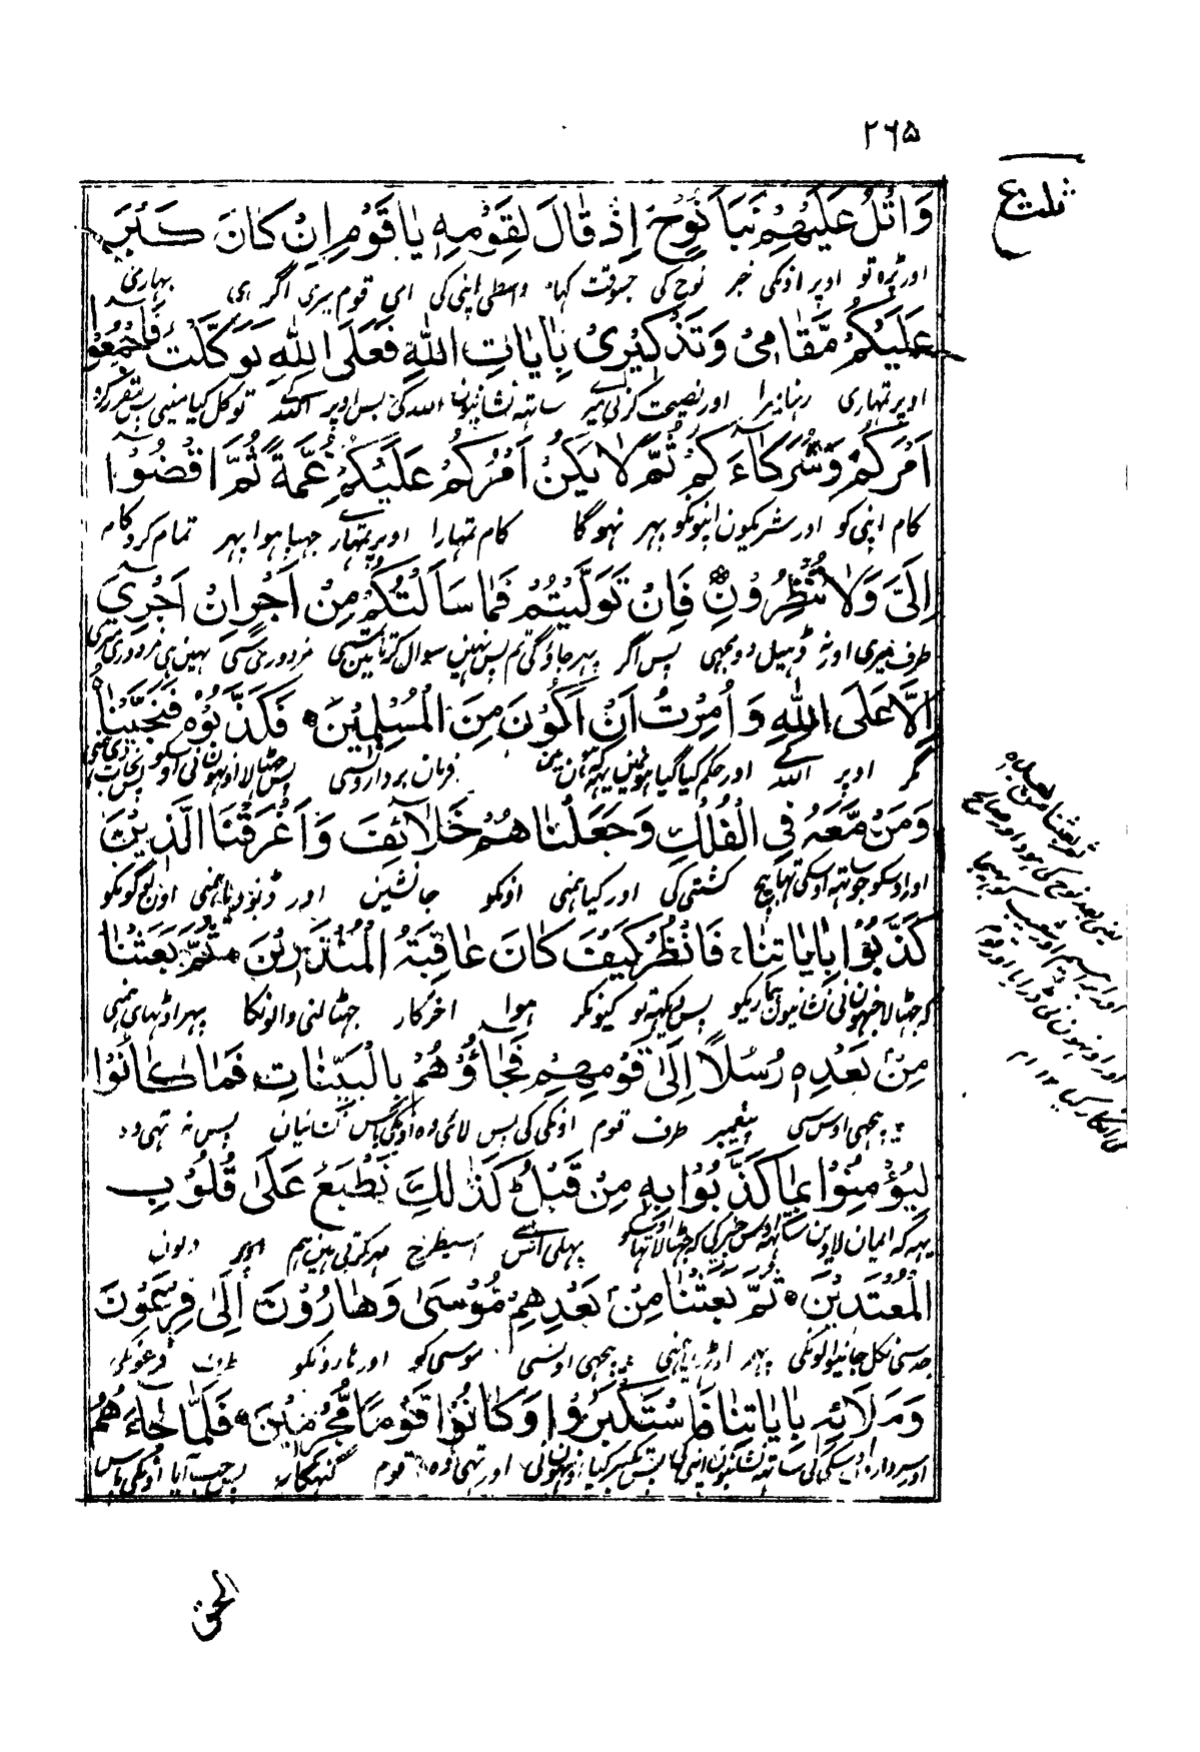 ۲۶۵
ثلث ع
وَاتْلُ عَلَيْهِمْ نَبَأَ نُوحٍ إِذْ قَالَ لِقَوْمِهِ يَا قَوْمِ إِنْ كَانَ كَبُرَ
اور پڑہ تو اوپر اونکی خبر نوح کی جسوقت کہا واسطی اپنی کی ای قوم میری اگر ہی بہاری
عَلَيْكُمْ مَّقَامِي وَتَذْكِيْرِي بِاٰيَاتِ اللّٰهِ فَعَلَى اللّٰهِ تَوَكَّلْتُ فَأَجْمِعُوا
اوپر تمہاری رہنا میرا اور نصیحت کرنی ساتہ نشانیون اللہ کی پس اوپر اللہ کے توکل کیا مینی
أَمْرَكُمْ وَشُرَكَآءَكُمْ ثُمَّ لَا يَكُنْ أَمْرُكُمْ عَلَيْكُمْ غُمَّةً ثُمَّ اقْضُوْا
کام اپنی کو اور شریکون اپنونکو پہر نہوگا کام تمہارا اوپر تمہارے چہپا ہوا پہر تمام کردو کام
إِلَيَّ وَلَا تُنْظِرُوْنِ فَإِنْ تَوَلَّيْتُمْ فَمَا سَأَلْتُكُمْ مِنْ أَجْرٍ إِنْ أَجْرِيَ
طرف میری اور نہ ڈہیل دو مجہی پس اگر پہر جاؤگی تم پس نہین سوال کرتا مین تمسی مزدوری نہین ہی مزدوری میری
إِلَّا عَلَى اللّٰهِ وَأُمِرْتُ أَنْ أَكُوْنَ مِنَ الْمُسْلِمِيْنَ فَكَذَّبُوْهُ فَنَجَّيْنَاهُ
مگر اوپر اللہ کے اور حکم کیا گیا ہونمین یہہ کہ ہون مین فرمان بردارونسی پس جہٹلایا اونہونی اوسکو
وَمَنْ مَّعَهُ فِي الْفُلْكِ وَجَعَلْنَاهُمْ خَلَآئِفَ وَأَغْرَقْنَا الَّذِيْنَ
اور اوسکو جو ساتہ اوسکی تہا بیچ کشتی کی اور کیا ہمنی اونکو جانشین اور ڈبودیا ہمنی اون لوگونکو
كَذَّبُوْا بِاٰيَاتِنَا فَانْظُرْ كَيْفَ كَانَ عَاقِبَةُ الْمُنْذَرِيْنَ ثُمَّ بَعَثْنَا
کہ جہٹلایا جنہونی نشانیون ہماریکو پس دیکہہ تو کیونکر ہوا آخرکار پہر اوٹہایا ہمنی
مِنْ بَعْدِهٖ رُسُلًا إِلَى قَوْمِهِمْ فَجَاؤُوْهُمْ بِالْبَيِّنَاتِ فَمَا كَانُوْا
پیچہی اوس سی پیغمبر طرف قوم اونکی کی پس لائی وہ اونکی پاس نشانیان پس نہ تہی وہ
لِيُؤْمِنُوْا بِمَا كَذَّبُوْا بِهِ مِنْ قَبْلُ كَذٰلِكَ نَطْبَعُ عَلَى قُلُوْبِ
یہہ کہ ایمان لاوین ساتہ اوس چیز کی کہ جہٹلایا تہا اوسکو پہلی اس سے اسیطرح مہر کرتی ہین ہم اوپر دلون
الْمُعْتَدِيْنَ ثُمَّ بَعَثْنَا مِنْ بَعْدِهِمْ مُّوْسَى وَهَارُوْنَ إِلَى فِرْعَوْنَ
حد سی نکل جانیوالونکی پہر پیچہی اونسی موسی کو اور ہارونکو طرف فرعونکی
وَمَلَائِهِ بِاٰيَاتِنَا فَاسْتَكْبَرُوْا وَكَانُوْا قَوْمًا مُّجْرِمِيْنَ فَلَمَّا جَآءَهُمُ
اور سردار اوسکی کی ساتہ نشانیون اپنی کی پس تکبر کیا اونہونی اور تہی وہ قوم گنہگار پس جب آیا اونکی پاس
ثم بعثنا من بعدہ
یعنی بعد نوح کی ہود اور صالح
اور ابراہیم اور شعیب کو بہیجا
اور اونہون نی ڈرایا
انکار کیا ۱۲
الحق